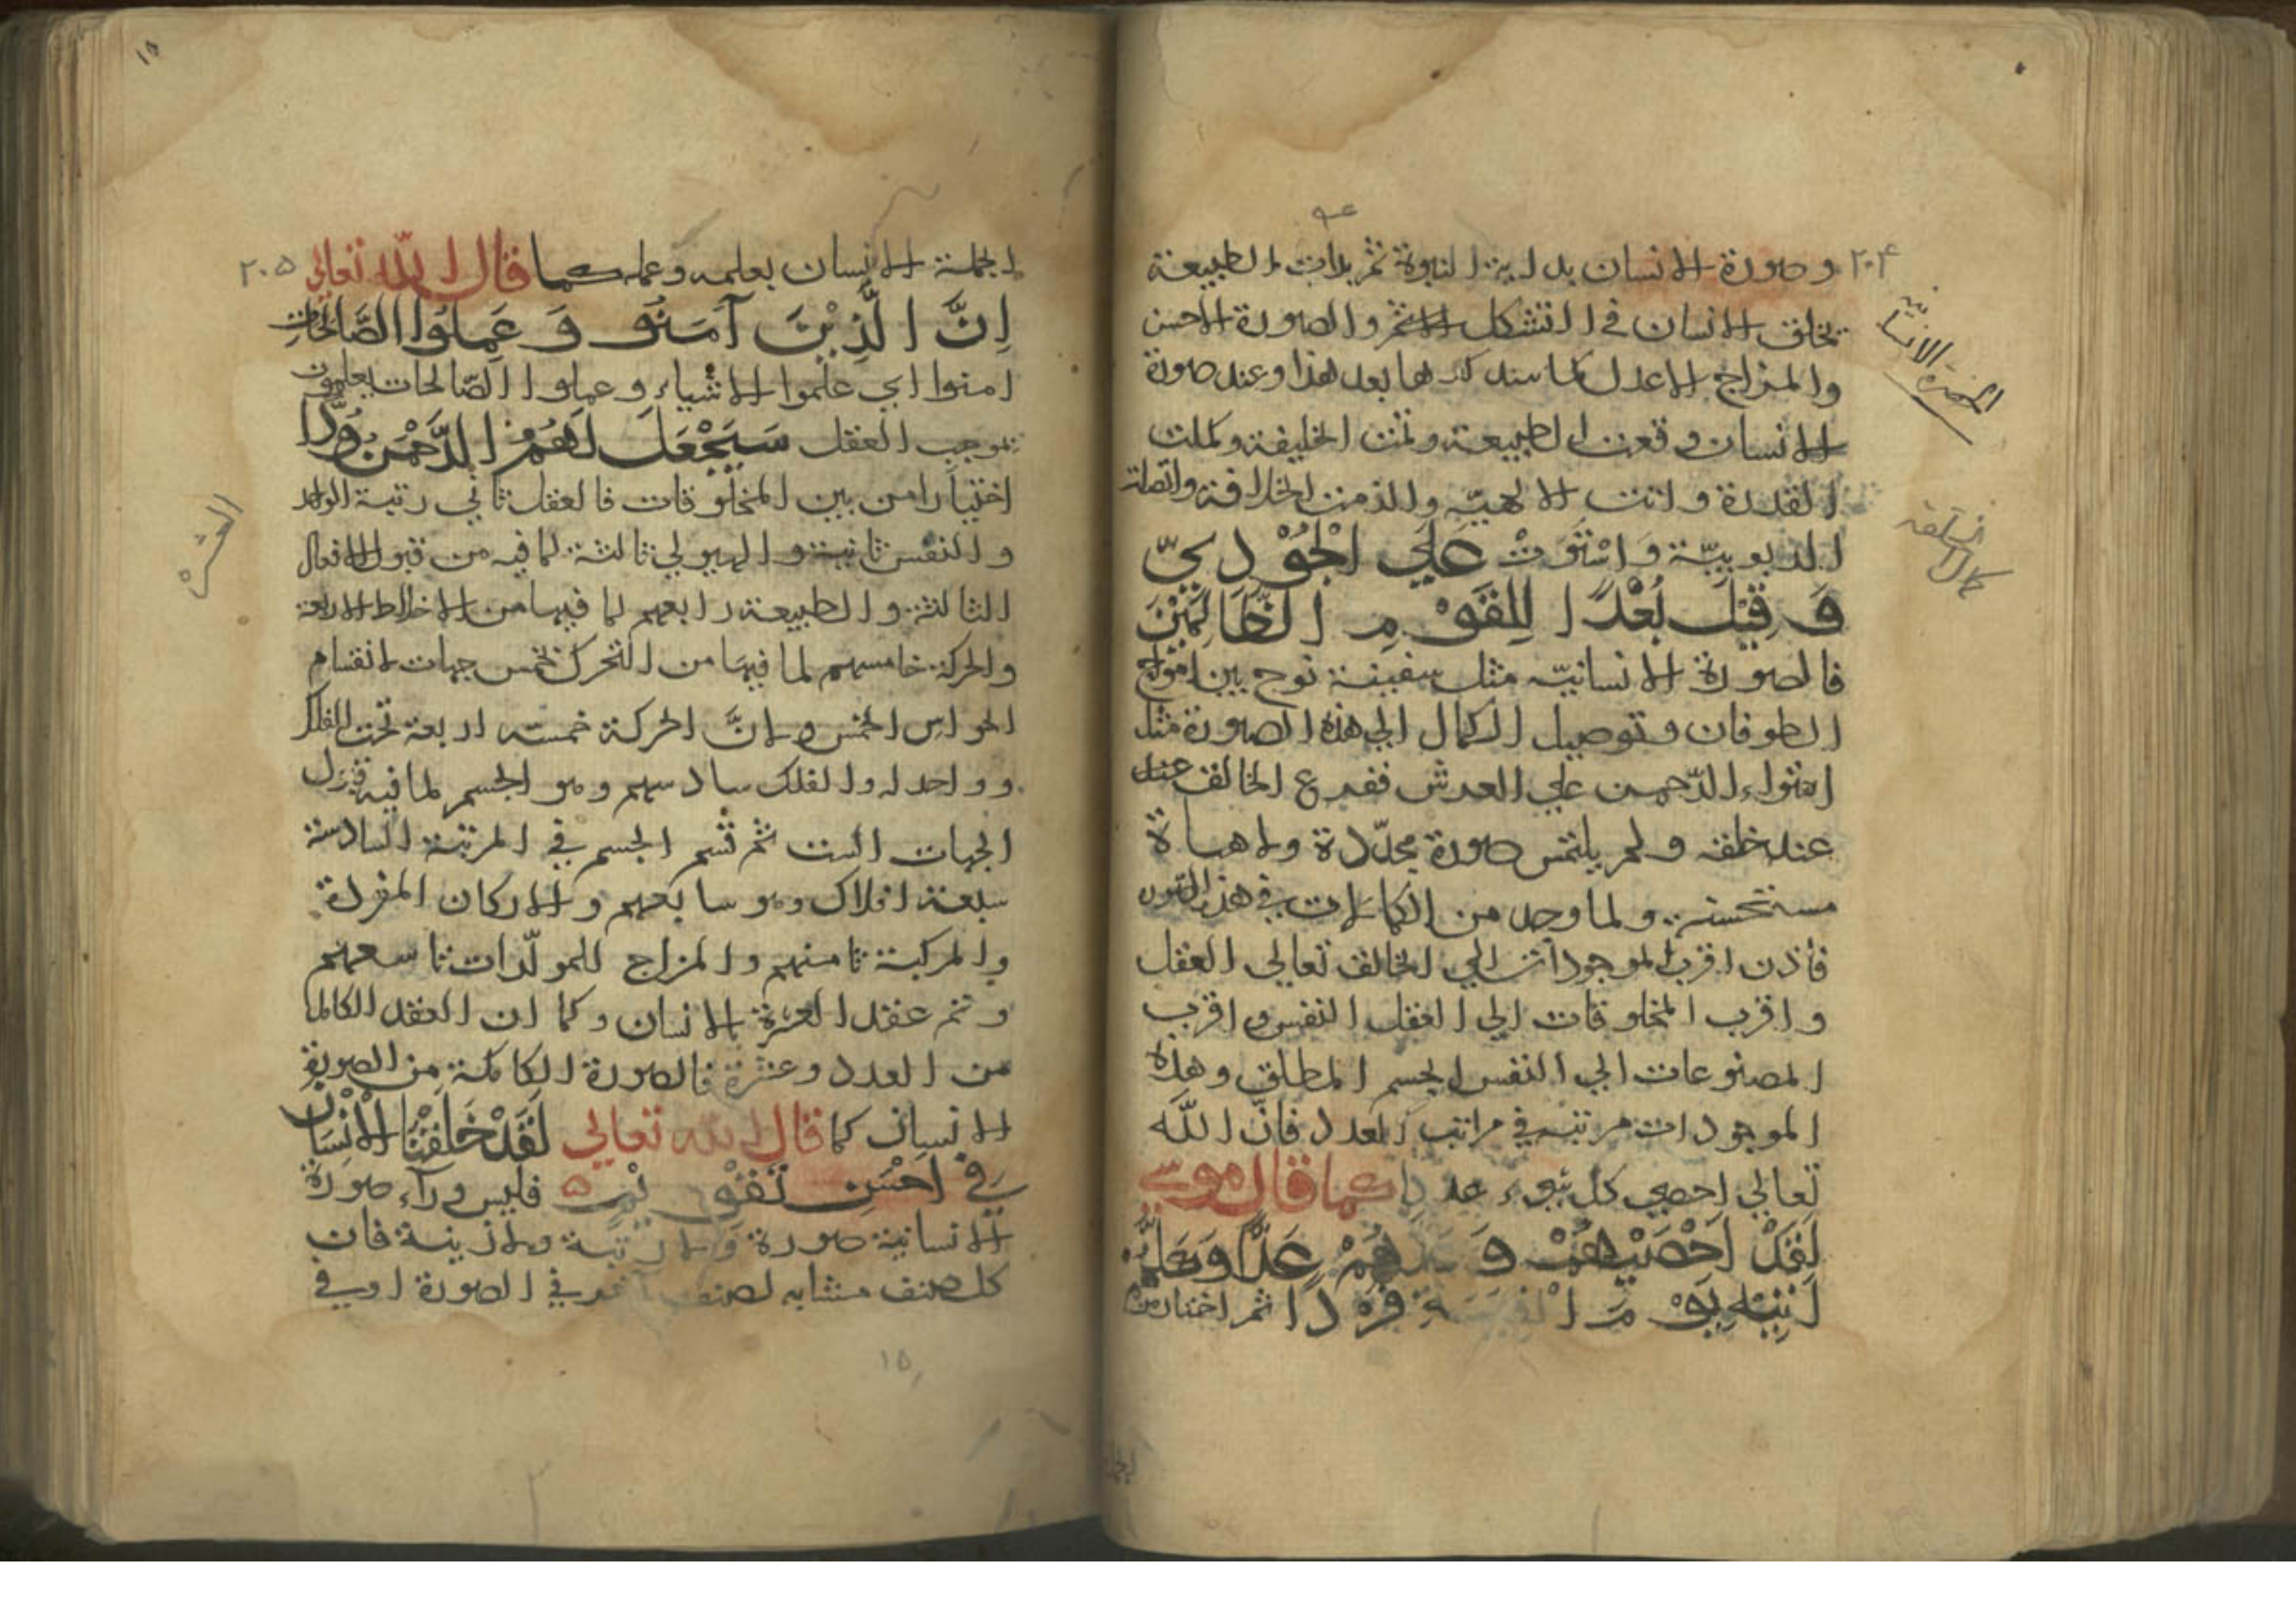 ٢٠٤
وصورة الانسان بداية النبوة ثم بدأت الطبيعة
تخلق الانسان في التشكل الاتم والصورة الاحسن
والمزاج الاعدل كما سنذكرها بعد هذا وعند صورة
الانسان وقعت الطبيعة وتمت الخليفة وكملت
القدرة واتت الالهية والذمت الخلافة واتصلت
الربوبية وَاسْتَوَتْ عَلَي الْجُوْدِيّ
وَقِيْلَ بُعْدًا لِلْقَوْمِ الظَّالِمِيْنَ
فالصورة الانسانيّه مثل سفينة نوح بين امواج
الطوفان وتوصيل الكمال الي هذه الصورة مثل
استواء الرّحمن علي العرش ففرع الخالق عنه
عند خلقه ولم يلتمس صورة مجدّدة ولا هياة
مستحسنه ولما وجد من الكمالات في هذه الصورة
فأذن اقرب الموجودات الي الخالق تعالي العقل
واقرب المخلوقات الي العقل النفس واقرب
المصنوعات الي النفس الجسم المطلق وهذه
الموجودات مرتبه في مراتب العدد فانّ اللّه
تعالي احصي كل شيء عددا كما قال موسي
لَقَدْ اَحْصَيْهُمْ وَعَدَّهُمْ عَدًّا وَكُلُّهُمْ
اَتِيْهِ يَوْمَ الْقِيمَةِ فَرْدًا ثم اختار من
الحضرة الانسانية
١٨
٢٠٥
الجملة الانسان بعلمه وعمله كما قال اللّه تعالي
اِنَّ الَّذِيْنَ آمَنُو وَعَمِلُوا الصَّالِحَاتِ
امنوا اي علموا الاشياء وعملوا الصّالحات بعلمهم
بموجب العقل سَيَجْعَلُ لَهُمُ الرَّحْمٰنُ وُدًّا
اختيارا من بين المخلوقات فالعقل ثاني رتبة الواحد
والنفس ثانية والهيولي ثالثة لما فيه من قبول الافعال
الثالثة والطبيعة رابعهم لما فيها من الاخلاط الاربعة
والحركة خامسهم لما فيها من التحرك لخمس جهات لانقسام
الحواس الخمس ولانَّ الحركة خمسة اربعة تحت الفلك
وواحد له والفلك سادسهم وهو الجسم لما فيه قبول
الجهات الست ثم قسم الجسم في المرتبة السادسة
سبعة افلاك وهو سابعهم والاركان المفردة
والمركبة ثامنهم والمزاج للمولّدات تاسعهم
وتم عقد العشرة الانسان وكما ان العقد الكامل
من العدد وعشرة فالصورة الكاملة من الصورة
الانسان كما قال اللّه تعالي لَقَدْ خَلَقْنَا الْاِنْسَانَ
فِي اَحْسَنِ تَقْوِيْمٍ فليس ورآء صورة
الانسانية صورة ولا رتبة ولا زينة فان
كل صنف متشابه لصنف آخر في الصورة او في
العشرة
١٥